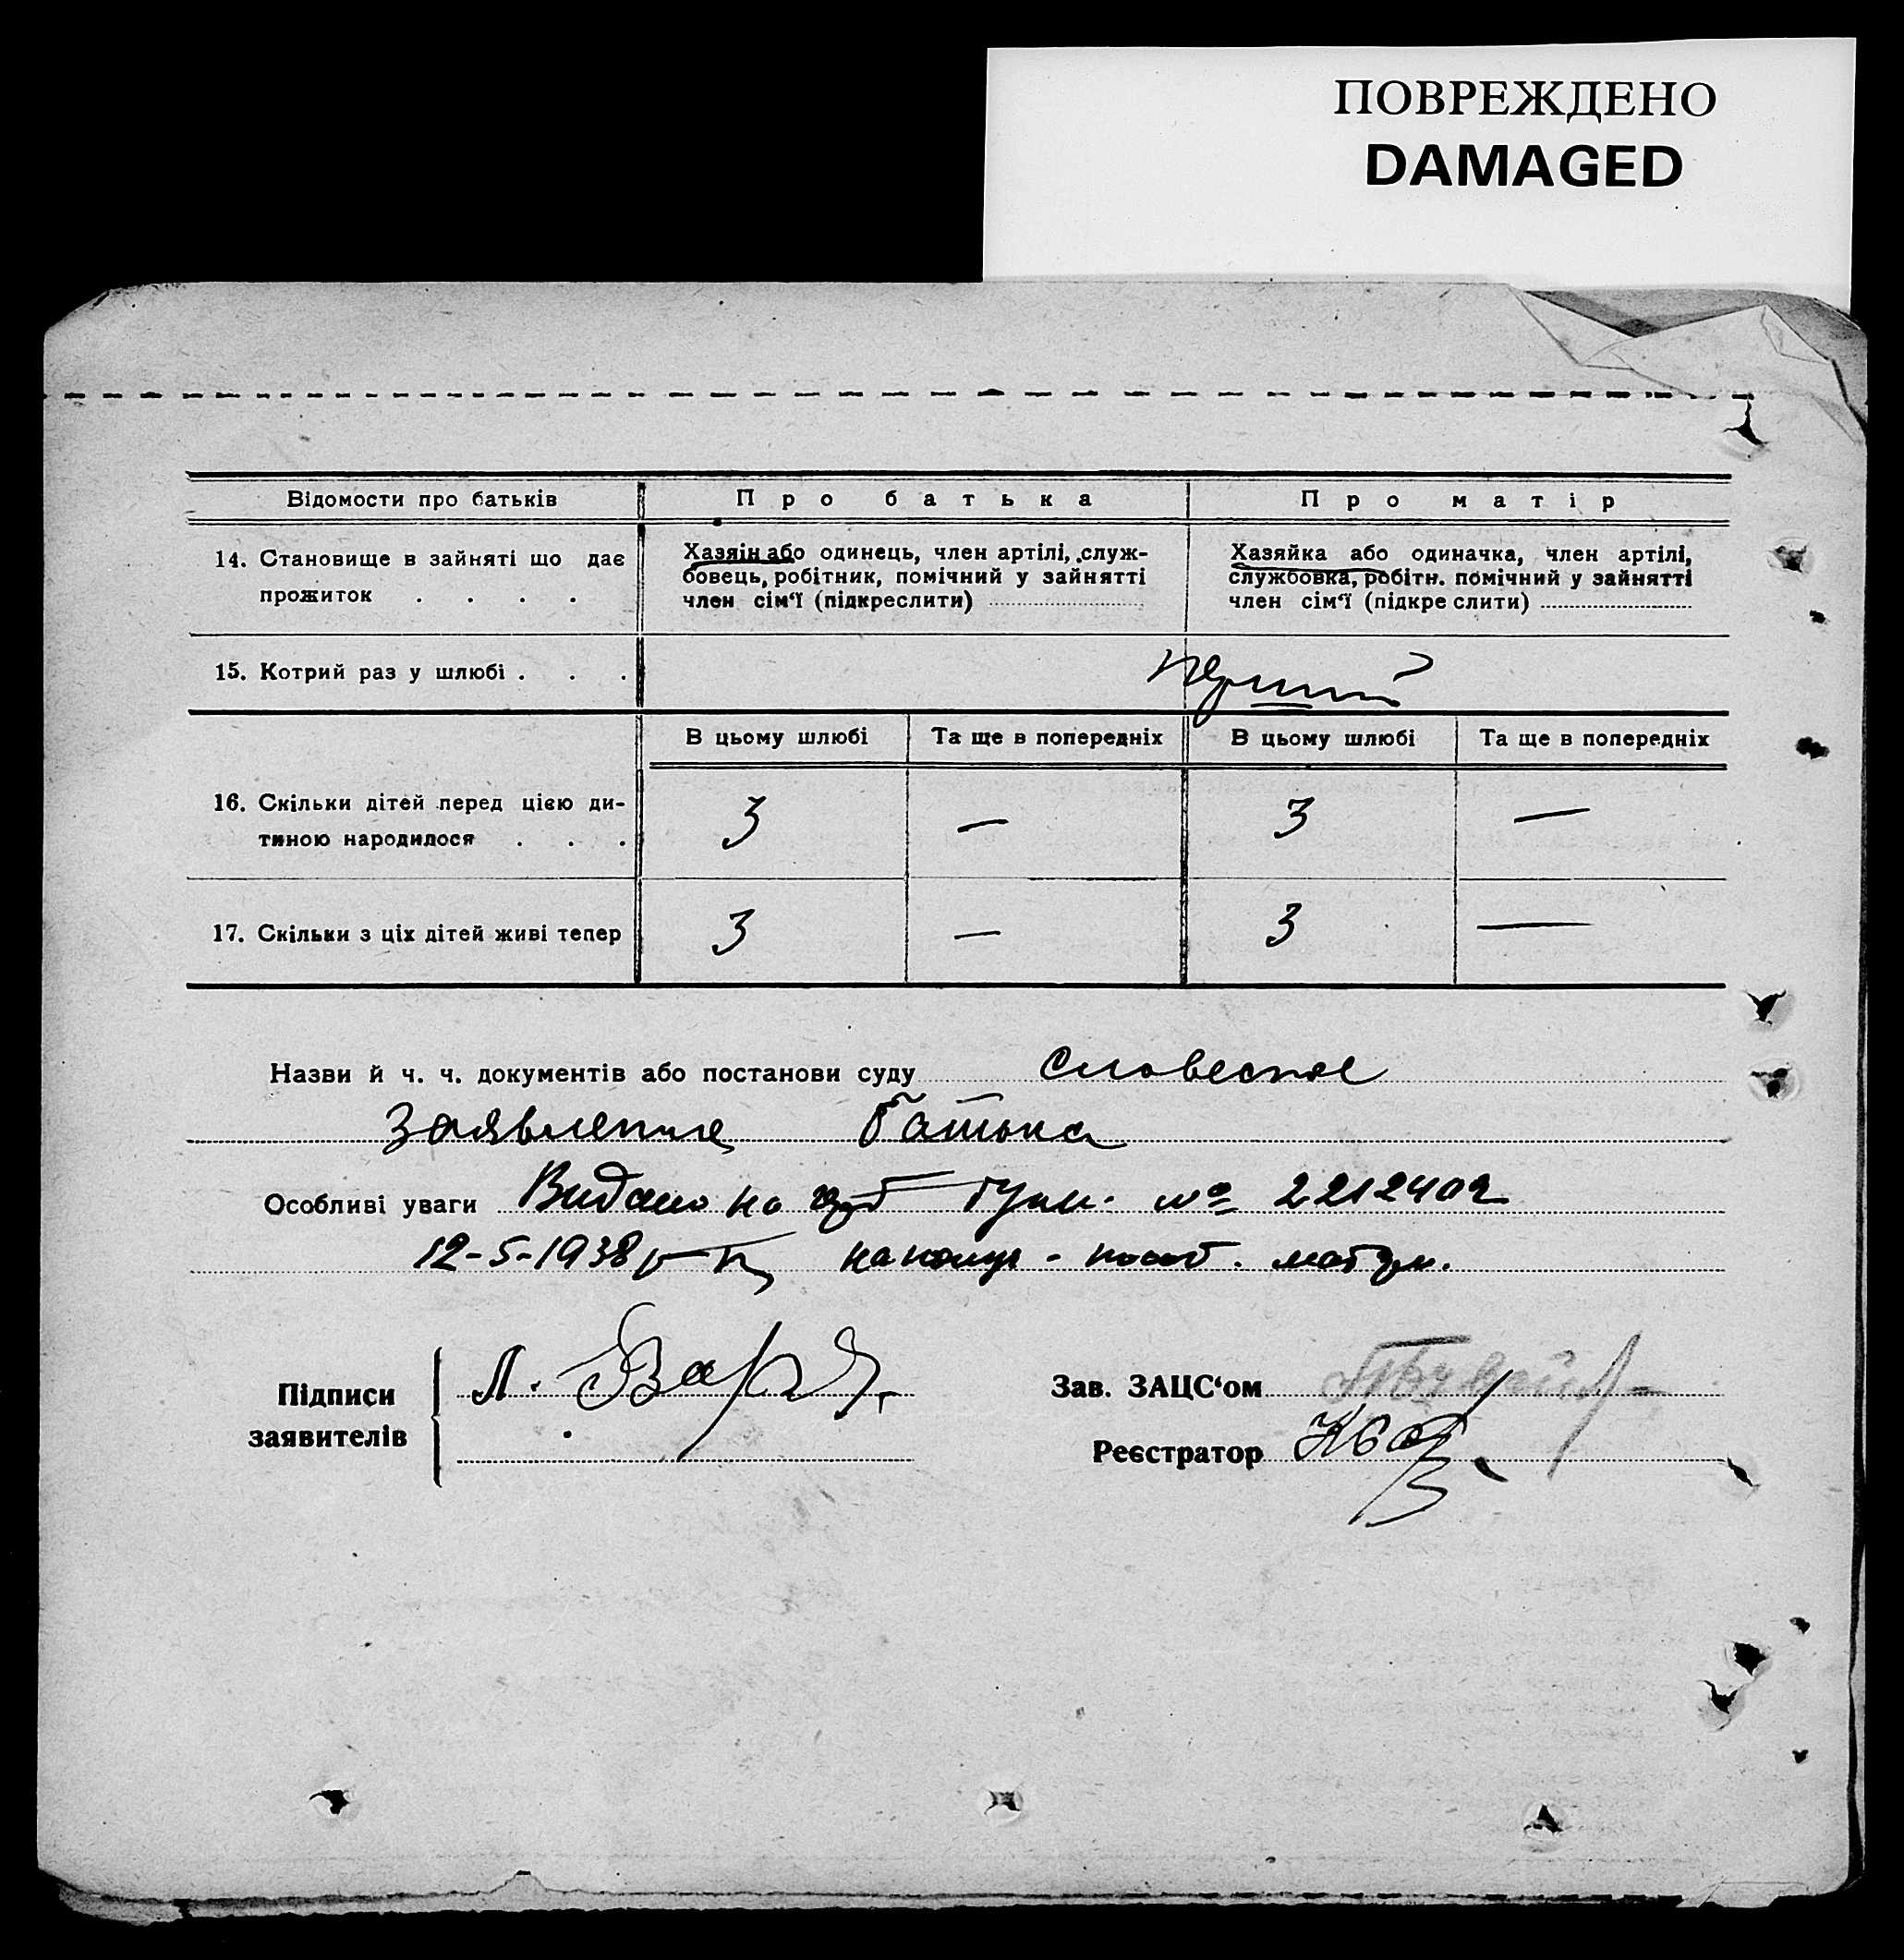 ПОВРЕЖДЕНО
DAMAGED
Відомости про батьків
Про батька
Про матір
14. Становище в зайняті що дає
прожиток . . . .
Хазяін або одинець, член артілі, служ-
бовець, робітник, помічний у зайнятті
член сім‘ї (підкреслити)
Хазяйка або одиначка, член артілі,
службовка, робітн. помічний у зайнятті
член сім‘ї (підкреслити)
15. Котрий раз у шлюбі . . .
перший
В цьому шлюбі
Та ще в попередніх
В цьому шлюбі
Та ще в попередніх
16. Скільки дітей перед цією ди-
тиною народилося . . .
3 — 3 —
17. Скільки з ціх дітей живі тепер
3 — 3 —
Назви й ч. ч. документів або постанови суду словесное
заявление батька
Особливі уваги Видано на № 2212402
12-5-1938
Підписи
заявителів
Л.
Зав. ЗАЦС‘ом
Реєстратор